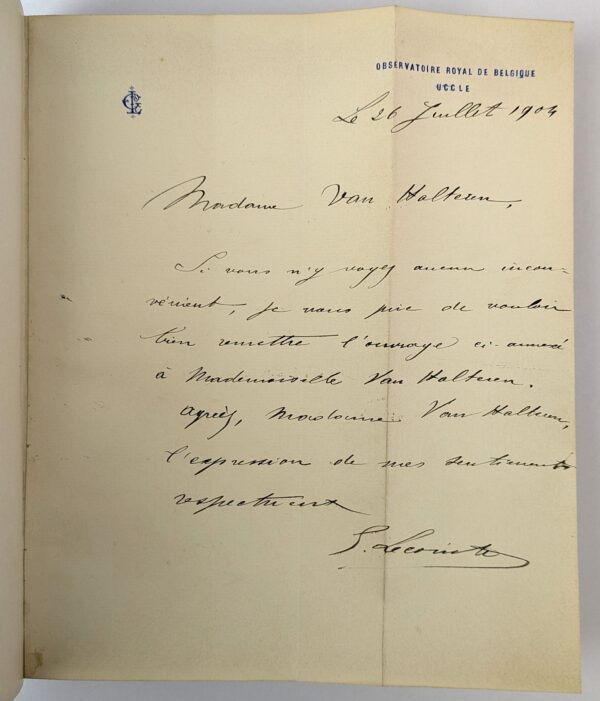 OBSERVATOIRE ROYAL DE BELGIQUE
UCCLE
Le 26 Juillet 1904
Madame Van Halteren,
Si vous n'y voyez aucun incon-
vénient, je vous prie de vouloir
bien remettre l'ouvrage ci-annexé
à Mademoiselle Van Halteren.
Agréez, Madame Van Halteren,
l'expression de mes sentiments
respectueux
G. Lecointe